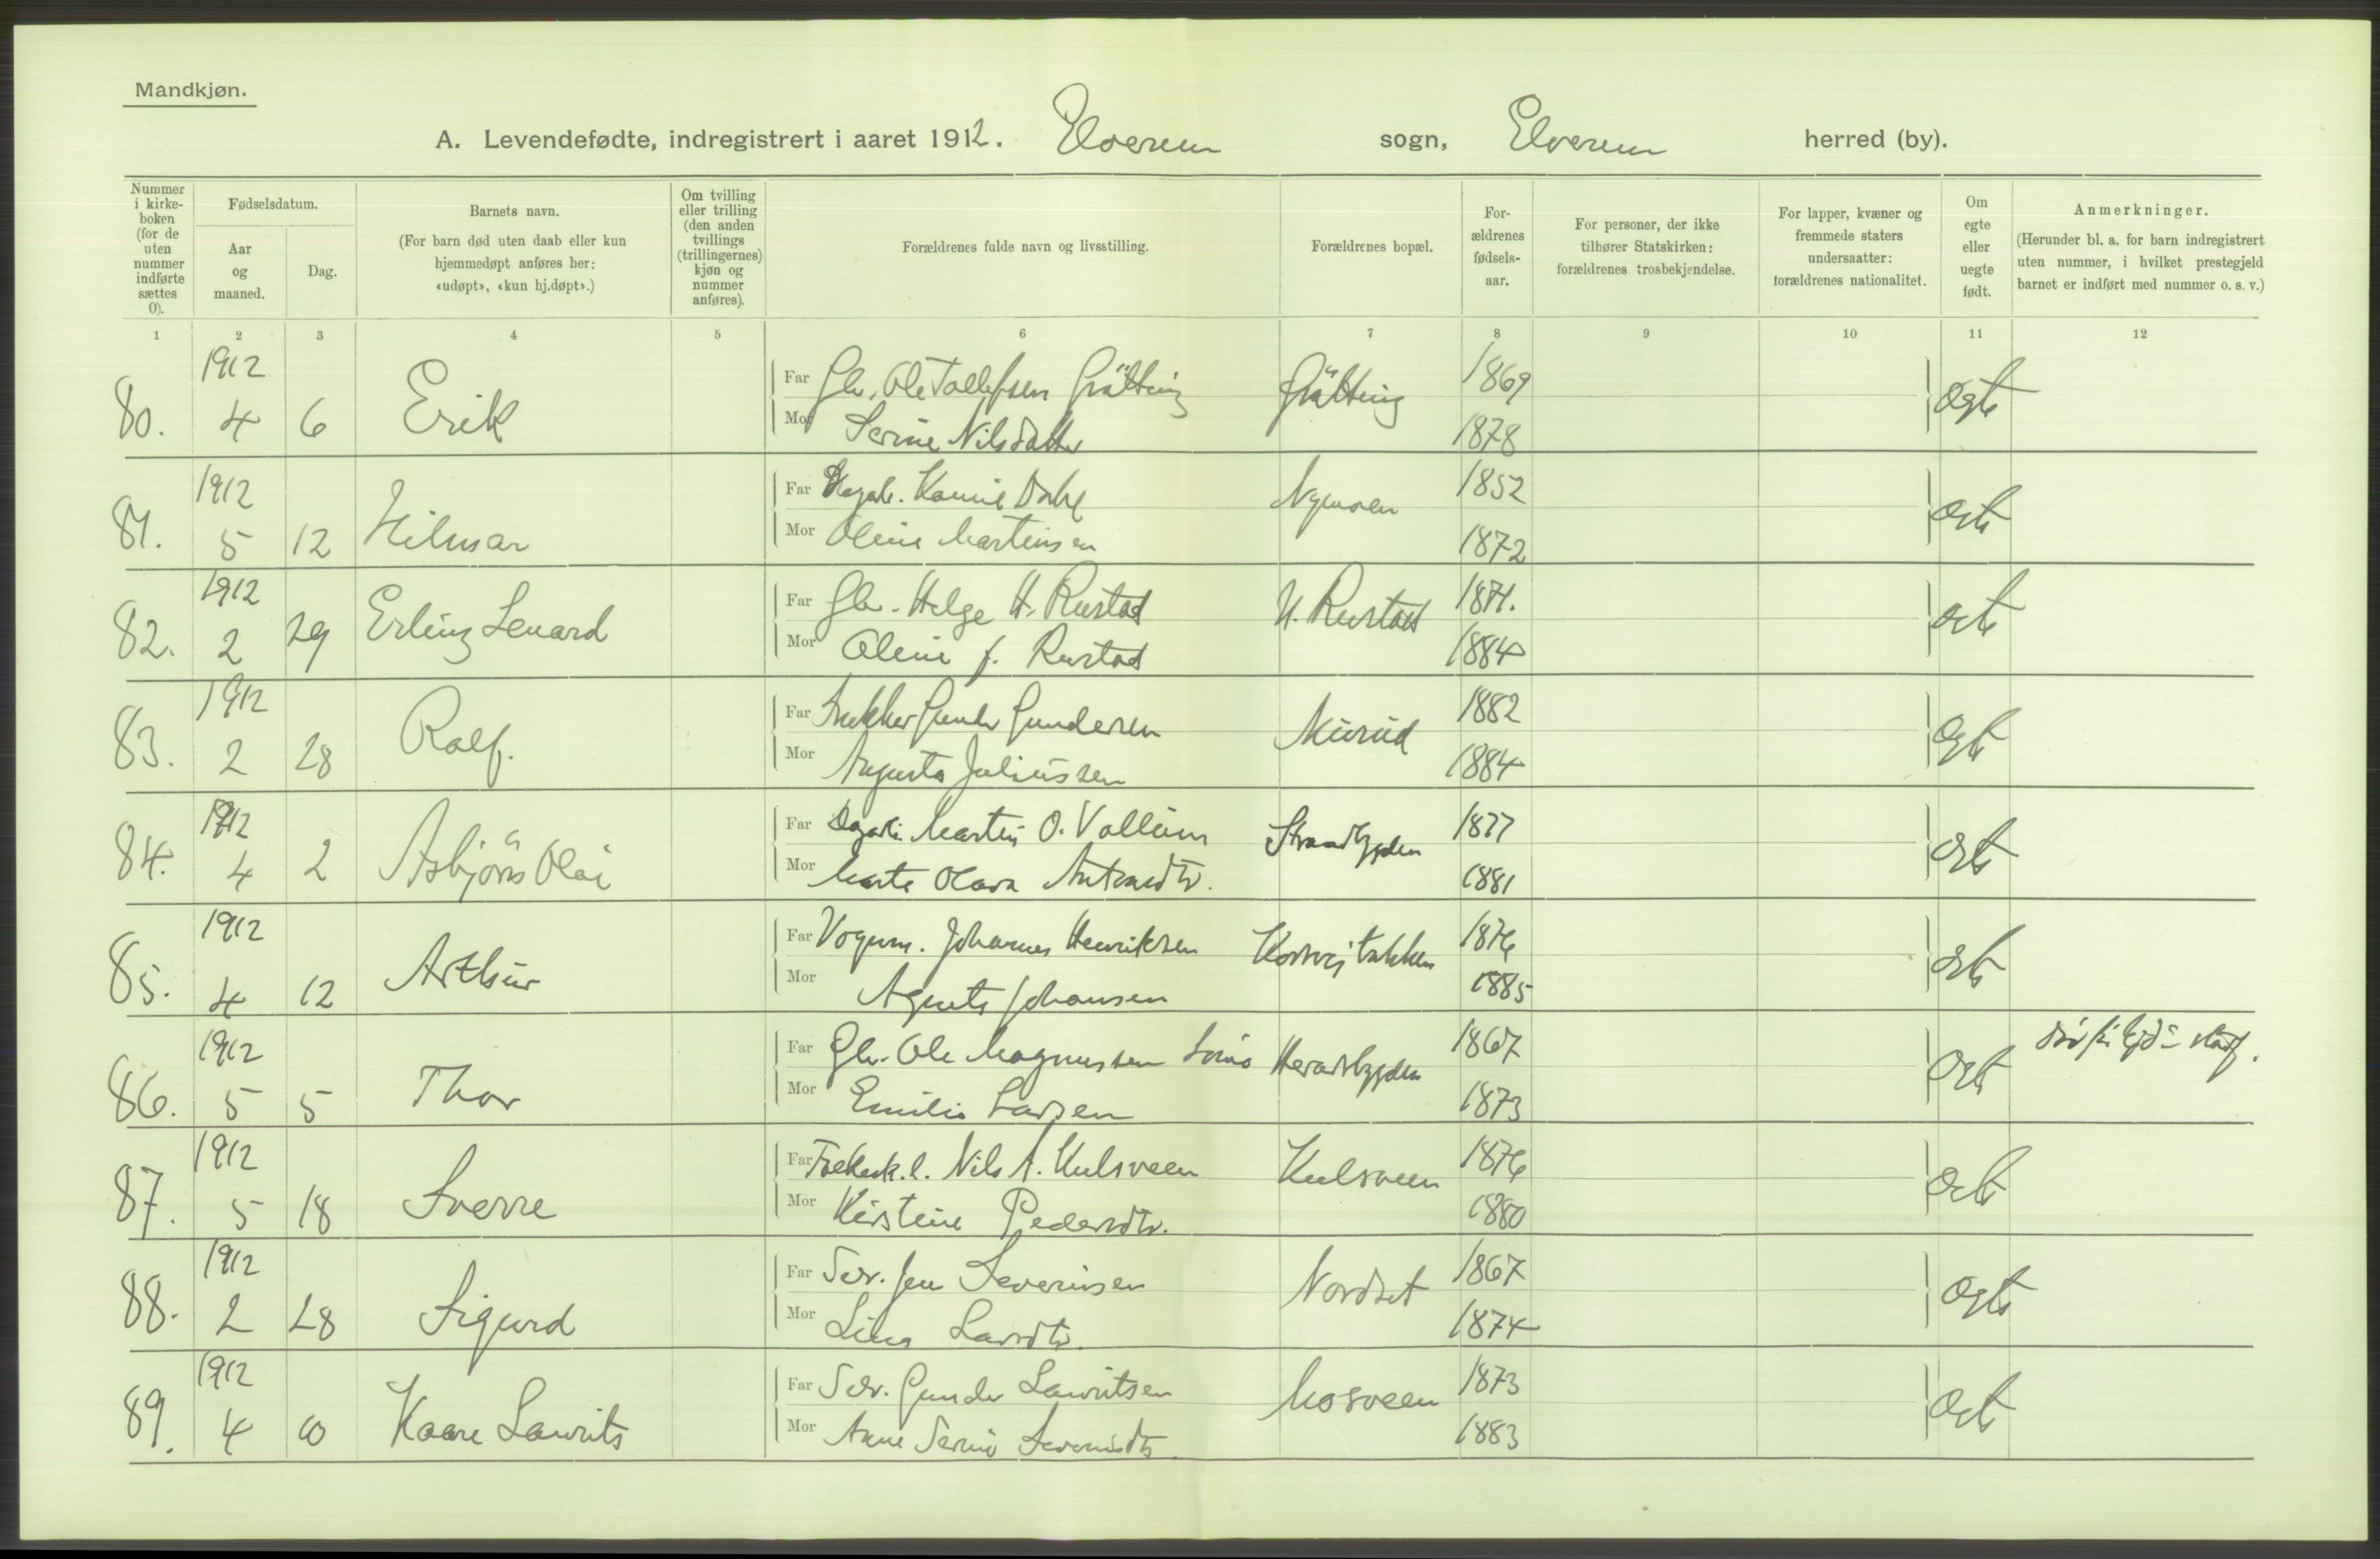 Mandkjøn.
A. Levendefødte, indregistrert i aaret 1912. Elverum sogn, Elverum herred (by).
Nummer i kirke- boken (for de uten nummer indførte sættes 0).
Fødselsdatum.
Aar og maaned.
Dag.
Barnets navn.
(For barn død uten daab eller kun hjemmedøpt anføres her: «udøpt», «kun hj.døpt».)
Om tvilling eller trilling (den anden tvillings (trillingernes) kjøn og nummer anføres).
Forældrenes fulde navn og livsstilling.
Forældrenes bopæl.
For- ældrenes fødsels- aar.
For personer, der ikke tilhører Statskirken: forældrenes trosbekjendelse.
For lapper, kvæner og fremmede staters undersaatter: forældrenes nationalitet.
Om egte eller uegte født.
Anmerkninger.
(Herunder bl. a. for barn indregistrert uten nummer, i hvilket prestegjeld barnet er indført med nummer o. s. v.)
1 2 3 4 5 6 7 8 9 10 11 12
80. 1912 4 6 Erik
Far Gbr. Ole Tollefsen Grätting Grätting 1869 Ægte
Mor Serine Nilsdatter 1878
81. 1912 5 12 Hilmar
Far Dagarb. Dahl Nymoen 1852 ægte
Mor Oline Martinsen 1872
82. 1912 2 29 Erling Lenard
Far Gbr. Helge H. Rustad N. Rustad 1871. ægte
Mor Oline f. Rustad 1884
83. 1912 2 28 Rolf.
Far Snekker Gunder Gundersen 1882 Ægte
Mor Augusta Juliussen 1884
84. 1912 4 2 Asbjörn Olai
Far Dagarb. Martin O. Vollum Strandbygden 1877 ægte
Mor Marte Olava 1881
85. 1912 4 12 Arthur
Far Vognm. Johannes Henriksen 1876 ægte
Mor Agnete Johansen 1885
86. 1912 5 5 Thor
Far Gbr. Ole Magnussen Heradsbygden 1867 ægte
Mor Emilie Larsen 1873
87. 1912 5 18 Sverre
Far Nils A. Kulsveen Kulsveen 1876 ægte
Mor Kirstine Pedersdtr. 1880
88. 1912 2 28 Sigurd
Far Selv. Jens Severinsen Nordset 1867 Ægte
Mor Lina Larsdtr. 1874
89. 1912 4 10 Kaare Laurits
Far Selv. Gunder Lauritsen Mosveen 1873 ægte
Mor Anne Serine Severinsdtr. 1883